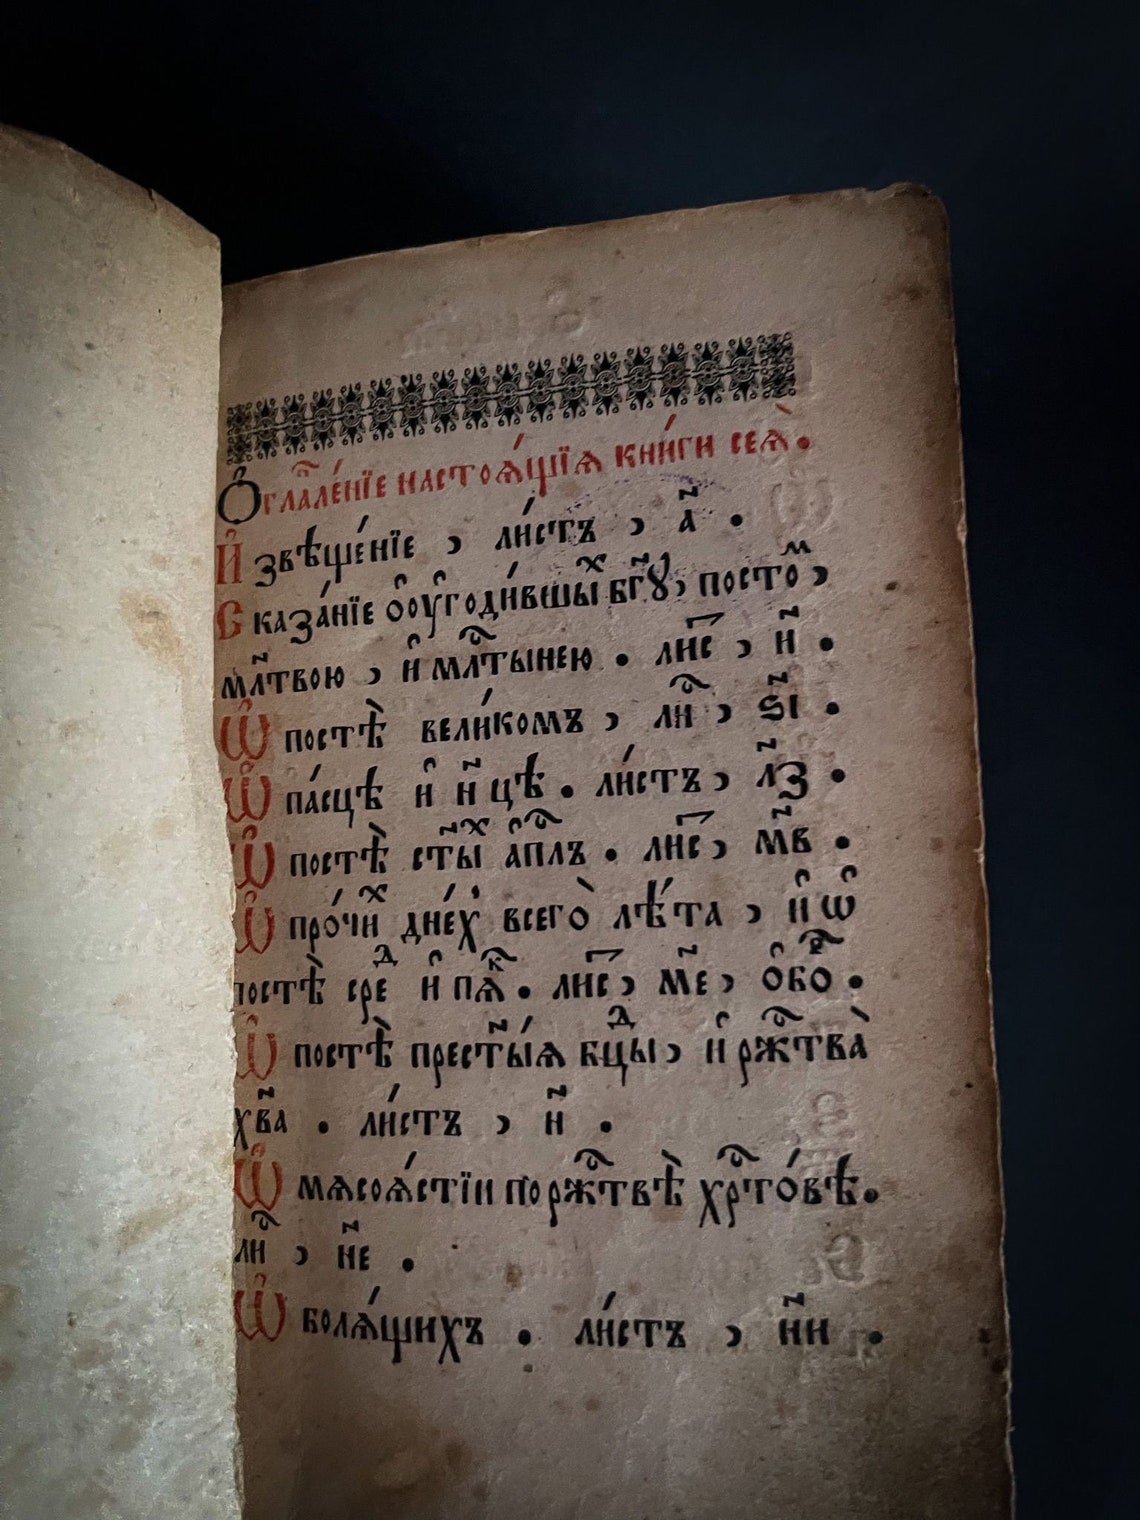 Ѻ҆гла́⸱вле́нїе настоѧ́щїѧ кни́ги сеѧ̀.
И҆звѣще́нїе , ли́стъ , а҃ .
Сказа́нїе ѻ҆ ᲂу҆годи́вшыⷯ бг҃ꙋ, постоⷨ ,
мл҃твою , и҆ млⷭ҇тынею . лиⷭ҇ , и҃ .
Ѡ҆ постѣ̀ вели́комъ , лиⷭ҇ , ѕ҃і .
Ѡ҆ па́сцѣ и҆ н҃цѣ . ли́стъ , л҃з .
Ѡ҆ постѣ̀ ст҃ыⷯ а҆пⷭ҇лъ . лиⷭ҇ , м҃в .
Ѡ҆ про́чиⷯ дне́хъ всегѡ̀ лѣ́та , и҆ ѡ҆
постѣ̀ среⷣ и҆ пѧⷦ҇ . лиⷭ҇ , м҃е , ѻ҆боⷬ҇ .
Ѡ҆ постѣ̀ прест҃ы́ѧ бцⷣы , и҆ ржⷭ҇тва̀
хв҃а . ли́стъ , н҃ .
Ѡ҆ мѧсоѧ́стїи по ржⷭ҇твѣ̀ хрⷭ҇то́вѣ.
лиⷭ҇ , н҃е .
Ѡ҆ болѧ́щихъ . ли́стъ , н҃и .